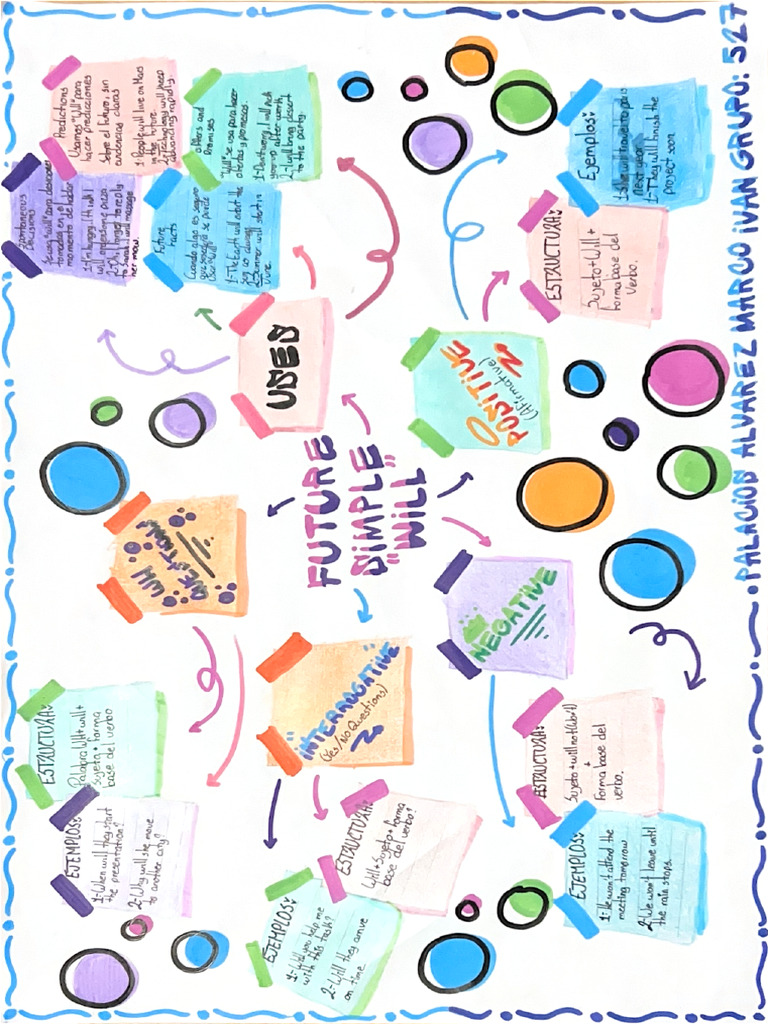 PALACIOS ALVAREZ MARCO IVAN GRUPO: 527
FUTURE
SIMPLE
"WILL"
WH
QUESTIONS
ESTRUCTURA:
Palabra WH+will+
sujeto + forma
base del verbo
EJEMPLOS:
1-When will they start
the presentation?
2-Why will she move
to another city?
INTERROGATIVE
(Yes/No Questions)
ESTRUCTURA:
Will+Sujeto+forma
base del verbo?
EJEMPLOS:
1-Will you help me
with this task?
2-Will they arrive
on time
NEGATIVE
ESTRUCTURA:
Sujeto+will not(won't)
+
Forma base del
verbo.
EJEMPLOS:
1-He won't attend the
meeting tomorrow
2-We won't leave until
the rain stops.
POSITIVE
(Afirmative)
ESTRUCTURA:
Sujeto+Will+
forma base del
Verbo.
Ejemplos:
1-She will travel to
next year
1-They will finish the
project soon
USES
Spontaneous
Decisions
tomadas en el
momento de hablar
1-I'm hungry, I think I
will
her now.
Predictions
Usamos "Will" para
hacer predicciones
Sobre el futuro, sin
1-People will live on Mars
in the future
2-Technology will keep
advancing rapidly.
Future
Facts
Cuando algo es seguro
que sucederá se puede
1-The Earth will orbit the
2-Summer will start in
June.
Offers and
Promises
"Will" se usa para hacer
ofertas y promesas.
1-Don't worry, I will pick
you up after work
2-I will bring desert
to the party.